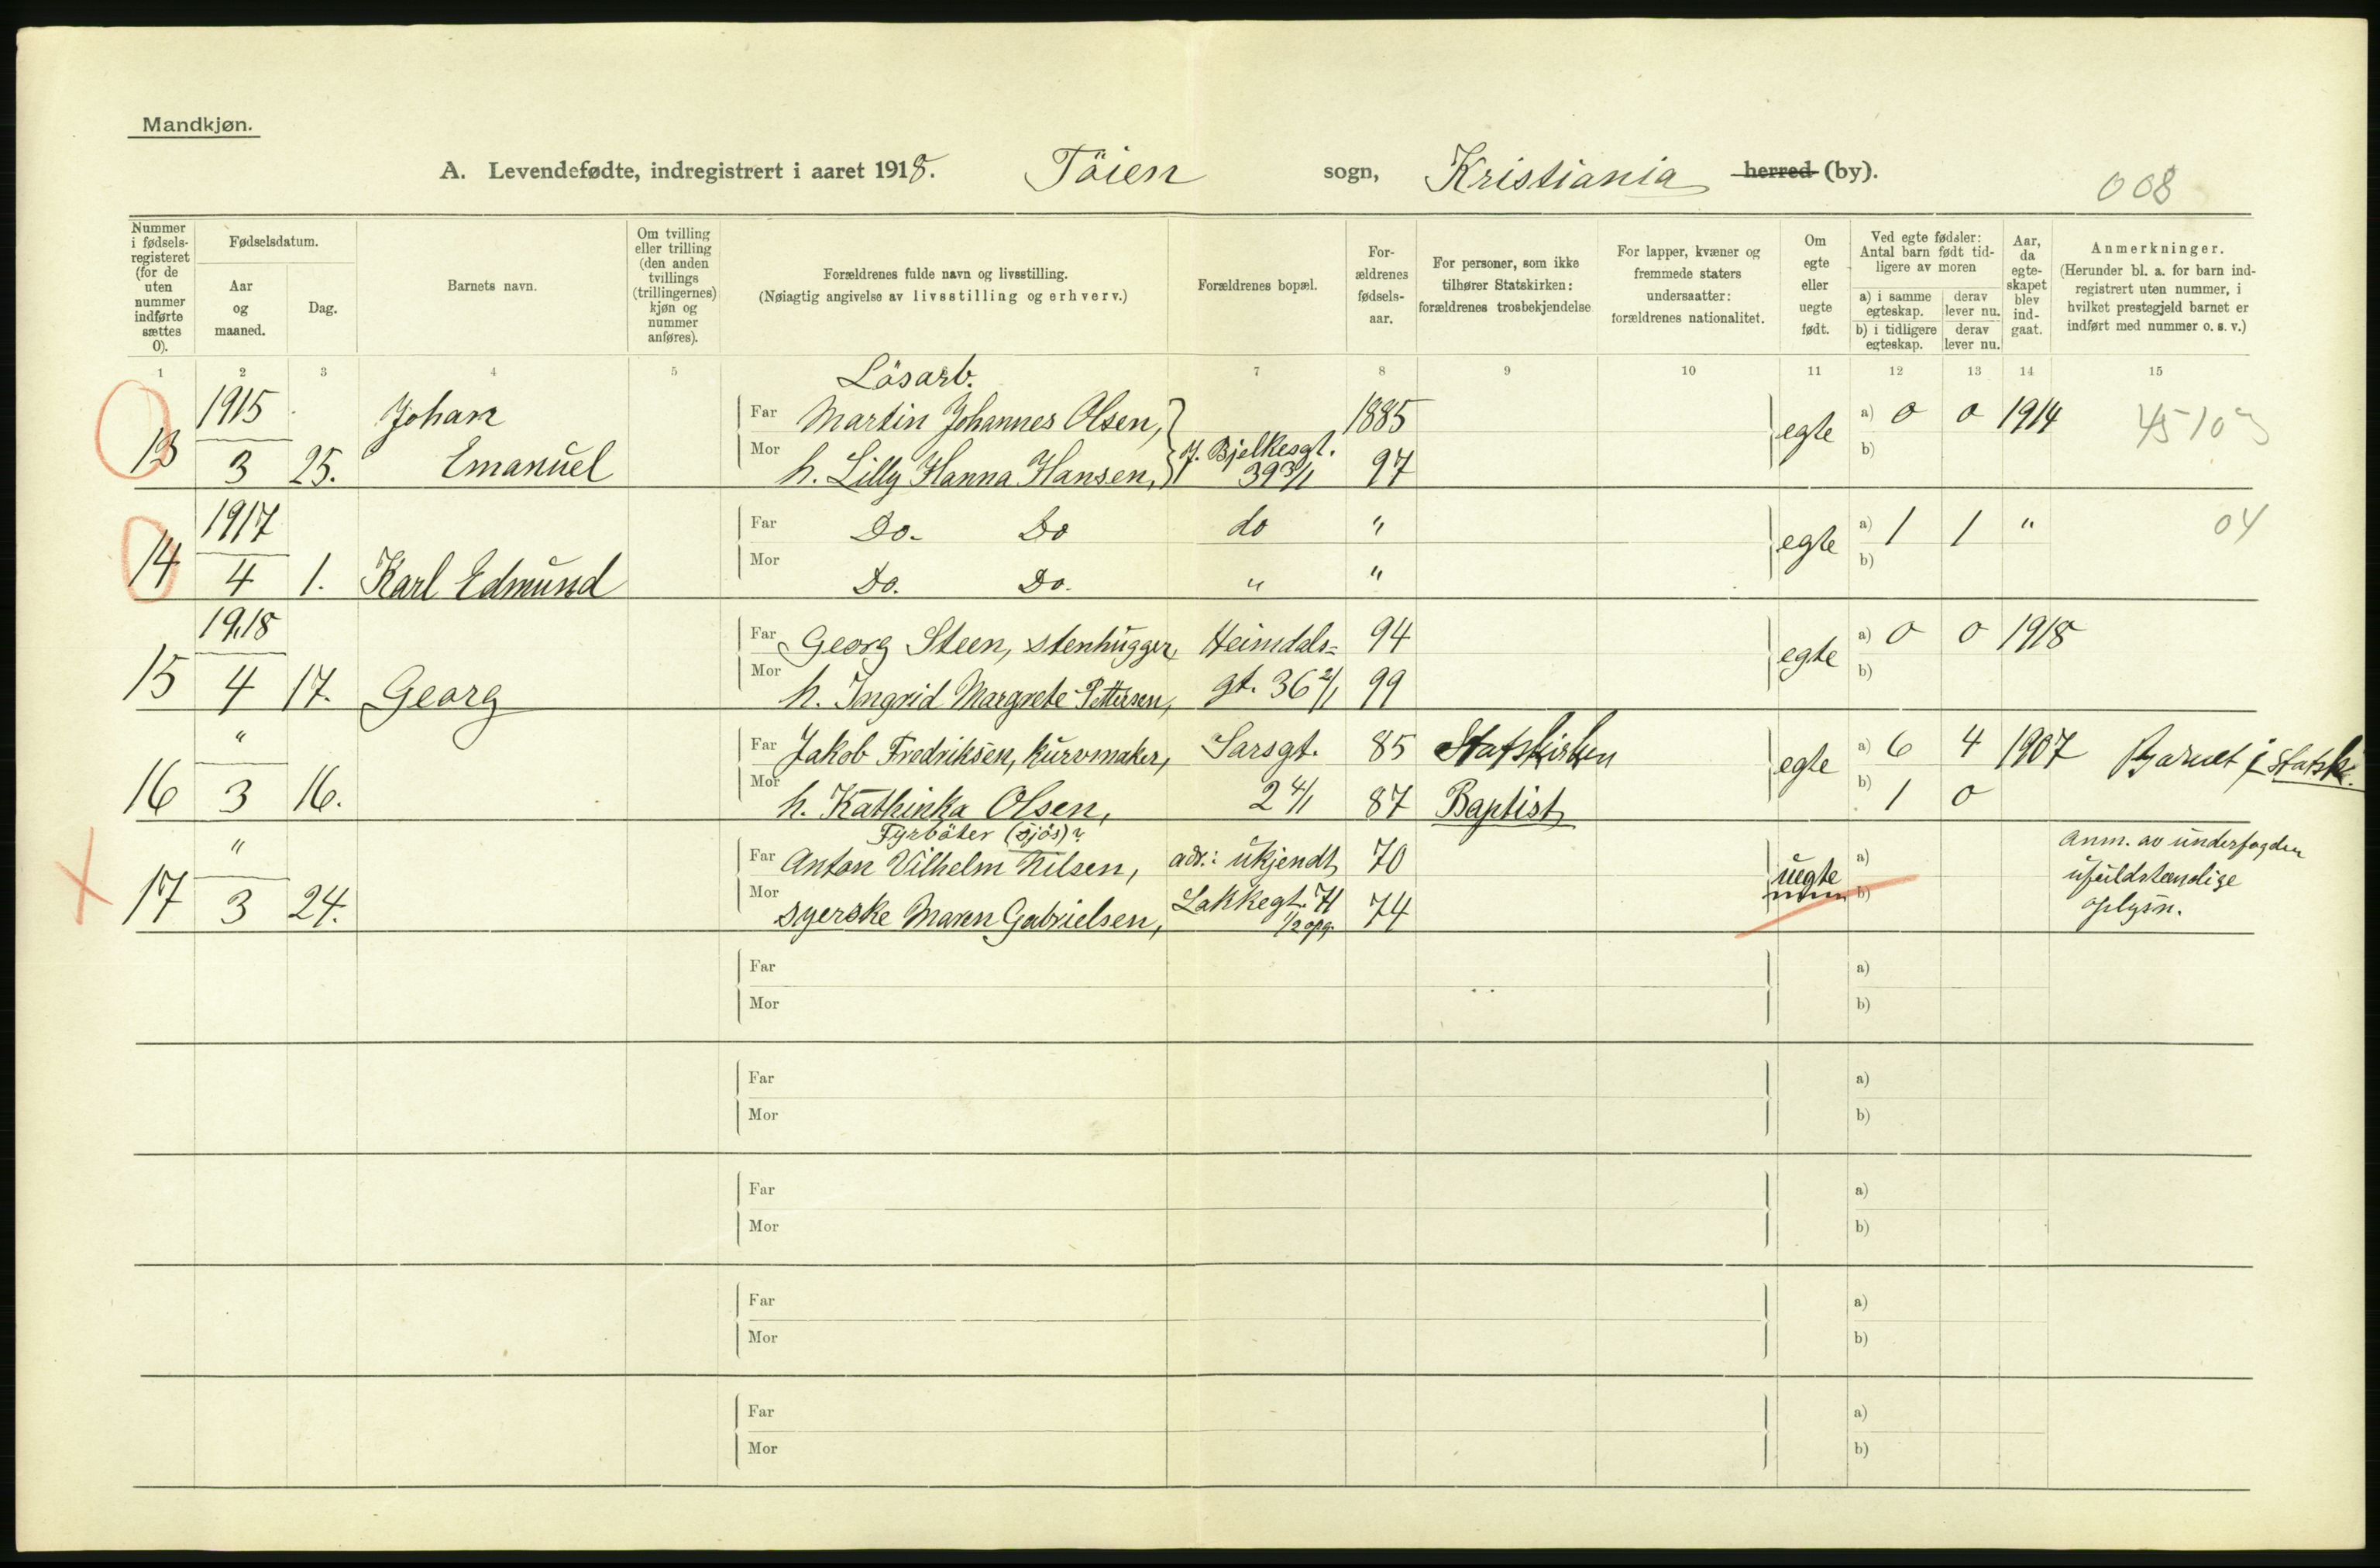 Mandkjøn.
A. Levendefødte, indregistrert i aaret 1918. Töien sogn, Kristiania herred (by).
008
Nummer i fødsels-registeret (for de uten nummer indførte sættes 0).
Fødselsdatum.
Aar og maaned.
Dag.
Barnets navn.
Om tvilling eller trilling (den anden tvillings (trillingernes) kjøn og nummer anføres).
Forældrenes fulde navn og livsstilling.
(Nøiagtig angivelse av livsstilling og erhverv.)
Forældrenes bopæl.
For-ældrenes fødsels-aar.
For personer, som ikke tilhører Statskirken: forældrenes trosbekjendelse
For lapper, kvæner og fremmede staters undersaatter: forældrenes nationalitet.
Om egte eller uegte født.
Ved egte fødsler: Antal barn født tid-ligere av moren
a) i samme egteskap. derav lever nu.
b) i tidligere egteskap. derav lever nu.
Aar, da egte-skapet blev ind-gaat.
Anmerkninger.
(Herunder bl. a. for barn ind-registrert uten nummer, i hvilket prestegjeld barnet er indført med nummer o. s. v.)
1 2 3 4 5 7 8 9 10 11 12 13 14 15
Lösarb.
1915 Johan Far Martin Johannes Olsen, 1885 a) 0 0 1914
13 3 25. Emanuel Mor h. Lilly Hanna Hansen, J. Bjelkesgt. 39 3/1 97 egte b)
1917 Far Do. Do do " a) 1 1 " 04
14 4 1. Karl Edmund Mor Do. Do. " " egte b)
1918 Far Georg Steen, stenhugger, Heimdals= 94 a) 0 0 1918
15 4 17. Georg Mor h. Ingrid Margrete Pettersen, gt. 36 2/1 99 egte b)
" Far Jakob Fredriksen, kurvmaker, Sarsgt. 85 Statskirken a) 6 4 1907 Barnet i Statsk.
16 3 16. Mor h. Kathinka Olsen, 2 4/1 87 Baptist egte b) 1 0
Fyrböter (sjös)?
" Far Anton Vilhelm Nilsen, adr.: ukjendt 70 a) Anm. av
17 3 24. Mor syerske Maren Gabrielsen, Lakkegt. 71 1/2 opg. 74 uegte b) ufuldstændige
oplysn.
Far a)
Mor b)
Far a)
Mor b)
Far a)
Mor b)
Far a)
Mor b)
Far a)
Mor b)